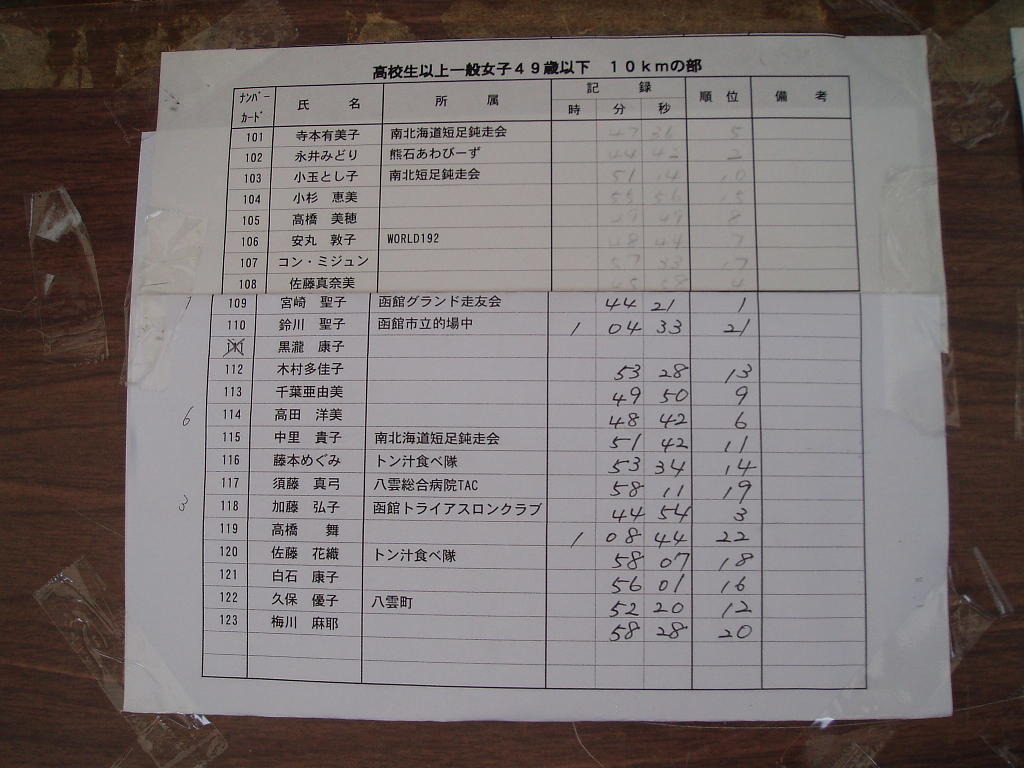 高校生以上一般女子49歳以下 10kmの部
ﾅﾝﾊﾞｰｶｰﾄﾞ 氏名 所属 記録 時 分 秒 順位 備考
101 寺本有美子 南北海道短足鈍走会 47 36 5
102 永井みどり 熊石あわびーず 44 42 2
103 小玉とし子 南北短足鈍走会 51 14 10
104 小杉 恵美 55 56 15
105 高橋 美穂 49 49 8
106 安丸 敦子 WORLD192 48 44 7
107 コン・ミジュン 57 33 17
108 佐藤真奈美 45 58 4
109 宮崎 聖子 函館グランド走友会 44 21 1
110 鈴川 聖子 函館市立的場中 1 04 33 21
111 黒瀧 康子
112 木村多佳子 53 28 13
113 千葉亜由美 49 50 9
6 114 高田 洋美 48 42 6
115 中里 貴子 南北海道短足鈍走会 51 42 11
116 藤本めぐみ トン汁食べ隊 53 34 14
117 須藤 真弓 八雲総合病院TAC 58 11 19
3 118 加藤 弘子 函館トライアスロンクラブ 44 54 3
119 高橋 舞 1 08 44 22
120 佐藤 花織 トン汁食べ隊 58 07 18
121 白石 康子 56 01 16
122 久保 優子 八雲町 52 20 12
123 梅川 麻耶 58 28 20